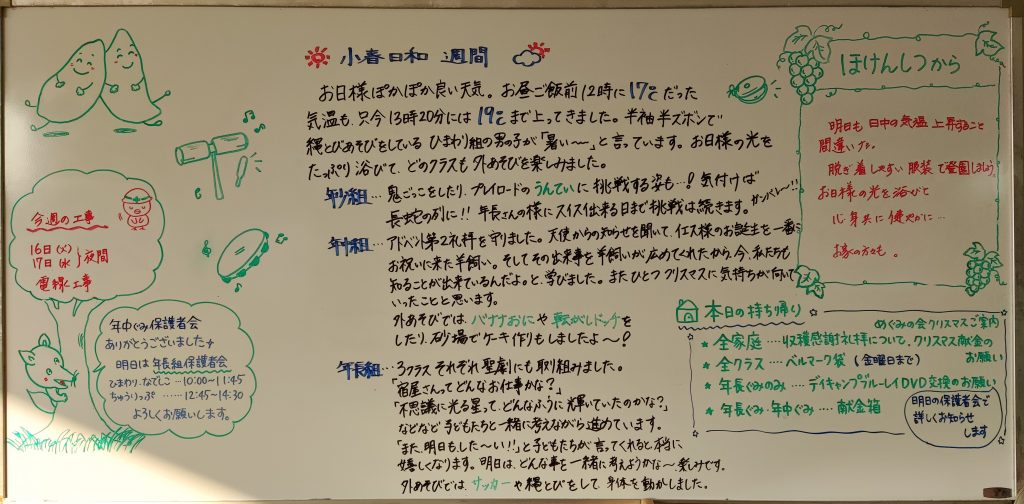 小春日和 週間
お日様ぽかぽか良い天気。お昼ご飯前12時に17℃だった
気温も、只今13時20分には19℃まで上ってきました。半袖半ズボンで
縄とびあそびをしている ひまわり組の男の子が「暑い〜」と言っています。お日様の光を
たっぷり浴びて、どのクラスも外あそびを楽しみました。
年少組…鬼ごっこをしたり、プレイロードのうんていに挑戦する姿も…!気付けば
長蛇の列に!!年長さんの様にスイスイ出来る日まで挑戦は続きます。ガンバレ〜!!
年中組…アドベント第2礼拝を守りました。天使からの知らせを聞いて、イエス様のお誕生を一番に
お祝いに来た羊飼い。そしてその出来事を羊飼いが広めてくれたから、今、私たちも
知ることが出来ているんだよ。と、学びました。またひとつクリスマスに気持ちが向いて
いったことと思います。
外あそびでは、バナナおにや転がしドッチを
したり、砂場でケーキ作りもしましたよ〜?
年長組…3クラスそれぞれ聖劇にも取り組みました。
「宿屋さんってどんなお仕事かな?」
「不思議に光る星って、どんなふうに輝いていたのかな?」
などなど子どもたちと一緒に考えながら進めています。
「また、明日もした〜い!!」と子どもたちが言ってくれると、本当に
嬉しくなります。明日は、どんな事を一緒に考えようかな〜楽しみです。
外あそびでは、サッカーや縄とびをして、身体を動かしました。
今週の工事
16日(火)
17日(水)
夜間
電線工事
年中ぐみ保護者会
ありがとうございました
明日は年長組保護者会
ひまわり、なでしこ…10:00〜11:45
ちゅうりっぷ……12:45〜14:30
よろしくお願いします。
ほけんしつから
明日も日中の気温上昇すること
間違いナシ。
脱ぎ着しやすい服装で登園しましょう。
お日様の光を浴びて
心身共に健やかに…
お家の方々も。
本日の持ち帰り
めぐみの会クリスマスご案内
★全家庭…収穫感謝礼拝について、クリスマス献金の
お願い
★全クラス…ベルマーク袋(金曜日まで)
★年長ぐみのみ…デイキャンプブルーレイDVD交換のお願い
★年長ぐみ・年中ぐみ…献金箱
明日の保護者会で
詳しくお知らせ
します